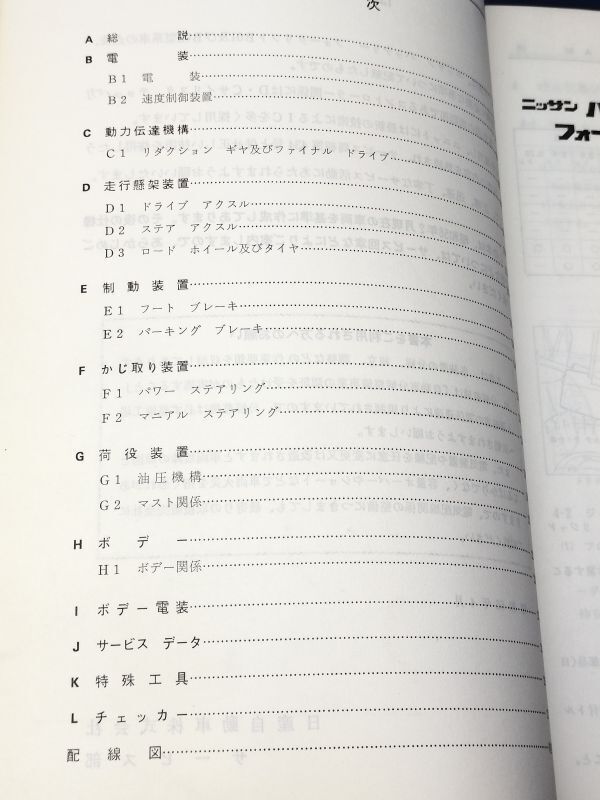 次
A 総説
B 電装
B1 電装
B2 速度制御装置
C 動力伝達機構
C1 リダクション ギヤ及びファイナル ドライブ
D 走行懸架装置
D1 ドライブ アクスル
D2 ステア アクスル
D3 ロード ホイール及びタイヤ
E 制動装置
E1 フート ブレーキ
E2 パーキング ブレーキ
F かじ取り装置
F1 パワー ステアリング
F2 マニアル ステアリング
G 荷役装置
G1 油圧機構
G2 マスト関係
H ボデー
H1 ボデー関係
I ボデー電装
J サービス データ
K 特殊工具
L チェッカー
配線図
ニッサン
フォー